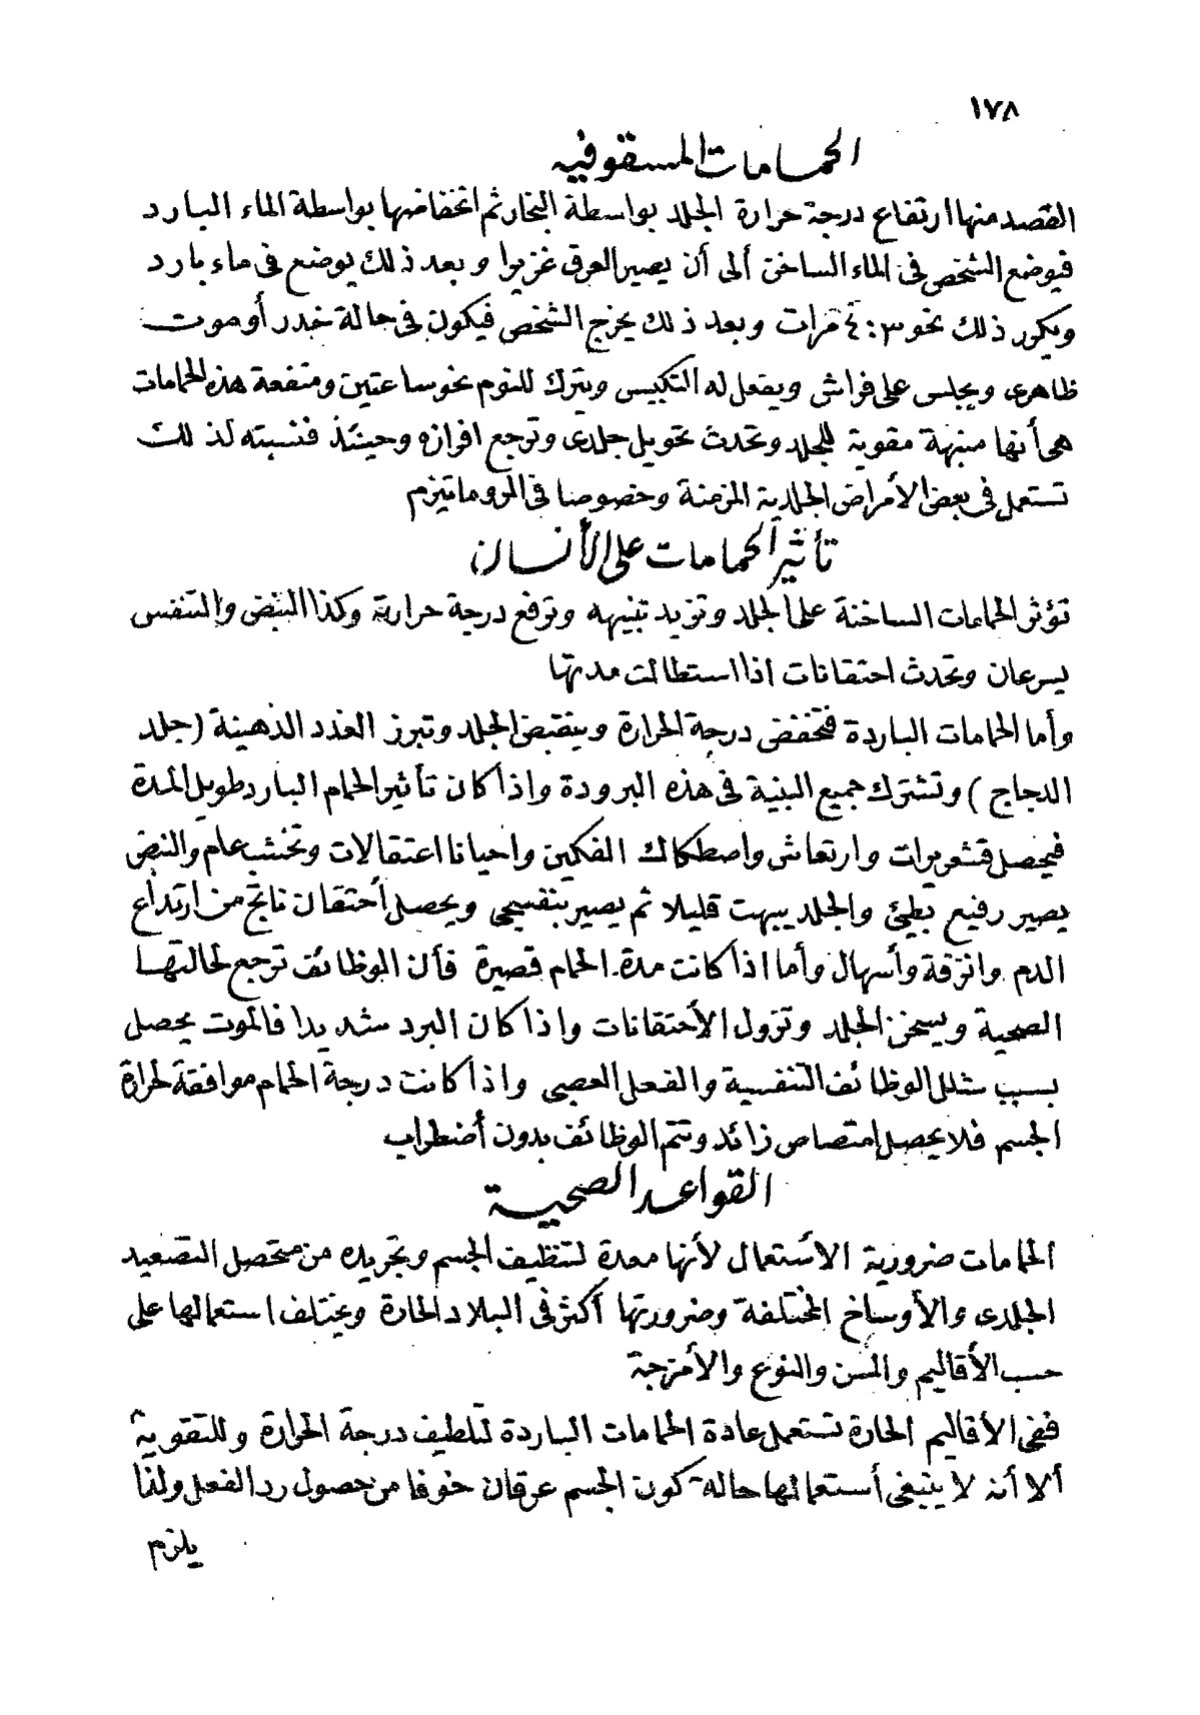 ١٧٨
الحمامات المسقوفيه
القصد منها ارتفاع درجة حرارة الجلد بواسطة البخار ثم انخفاضها بواسطة الماء البارد
فيوضع الشخص فى الماء الساخن ألى أن يصير العرق غزيرا وبعد ذلك يوضع فى ماء بارد
ويكرر ذلك نحو ٣ : ٤ مرات وبعد ذلك يخرج الشخص فيكون فى حالة خدر أوموت
ظاهرى ويجلس على فراش ويفعل له التكبيس ويترك للنوم نحو ساعتين ومنفعة هذه الحمامات
هى أنها منبهة مقوية للجلد وتحدث تحويل جلدى وترجع افرازه وحينئذ فنسبته لذلك
تستعمل فى بعض الأمراض الجلدية المزمنة وخصوصا فى الروماتيزم
تأثير الحمامات على الأنسان
تؤثر الحمامات الساخنة على الجلد وتزيد تنبيهه وترفع درجة حرارته وكذا النبض والتنفس
يسرعان وتحدث احتقانات اذا استطالت مدتها
وأما الحمامات الباردة فتخفض درجة الحرارة وينقبض الجلد وتبرز الغدد الذهنية (جلد
الدجاج) وتشترك جميع البنية فى هذه البرودة واذا كان تأثير الحمام البارد طويل المدة
فيحصل قشعريرات وارتعاش واصطكاك الفكين واحيانا اعتقالات وتخشب عام والنبض
يصير رفيع بطئ والجلد يبهت قليلا ثم يصير بنفسجى ويحصل أحتقان ناتج من ارتداع
الدم وانزفة وأسهال وأما اذا كانت مدة الحمام قصيرة فأن الوظائف ترجع لحالتها
الصحية ويسخن الجلد وتزول الأحتقانات واذا كان البرد شديدا فالموت يحصل
بسبب شلل الوظائف التنفسية والفعل العصبى واذا كانت درجة الحمام موافقة لحرارة
الجسم فلا يحصل امتصاص زائد وتتم الوظائف بدون أضطراب
القواعد الصحية
الحمامات ضرورية الأستعمال لأنها معدة لتنظيف الجسم وتجريده من متحصل التصعيد
الجلدى والأوساخ المختلفة وضرورتها أكثر فى البلاد الحارة ويختلف استعمالها على
حسب الأقاليم والسن والنوع والأمزجة
ففى الأقاليم الحارة تستعمل عادة الحمامات الباردة لتلطيف درجة الحرارة وللتقوية
ألا أنه لا ينبغى أستعمالها حالة كون الجسم عرقان خوفا من حصول رد الفعل ولذا
يلزم